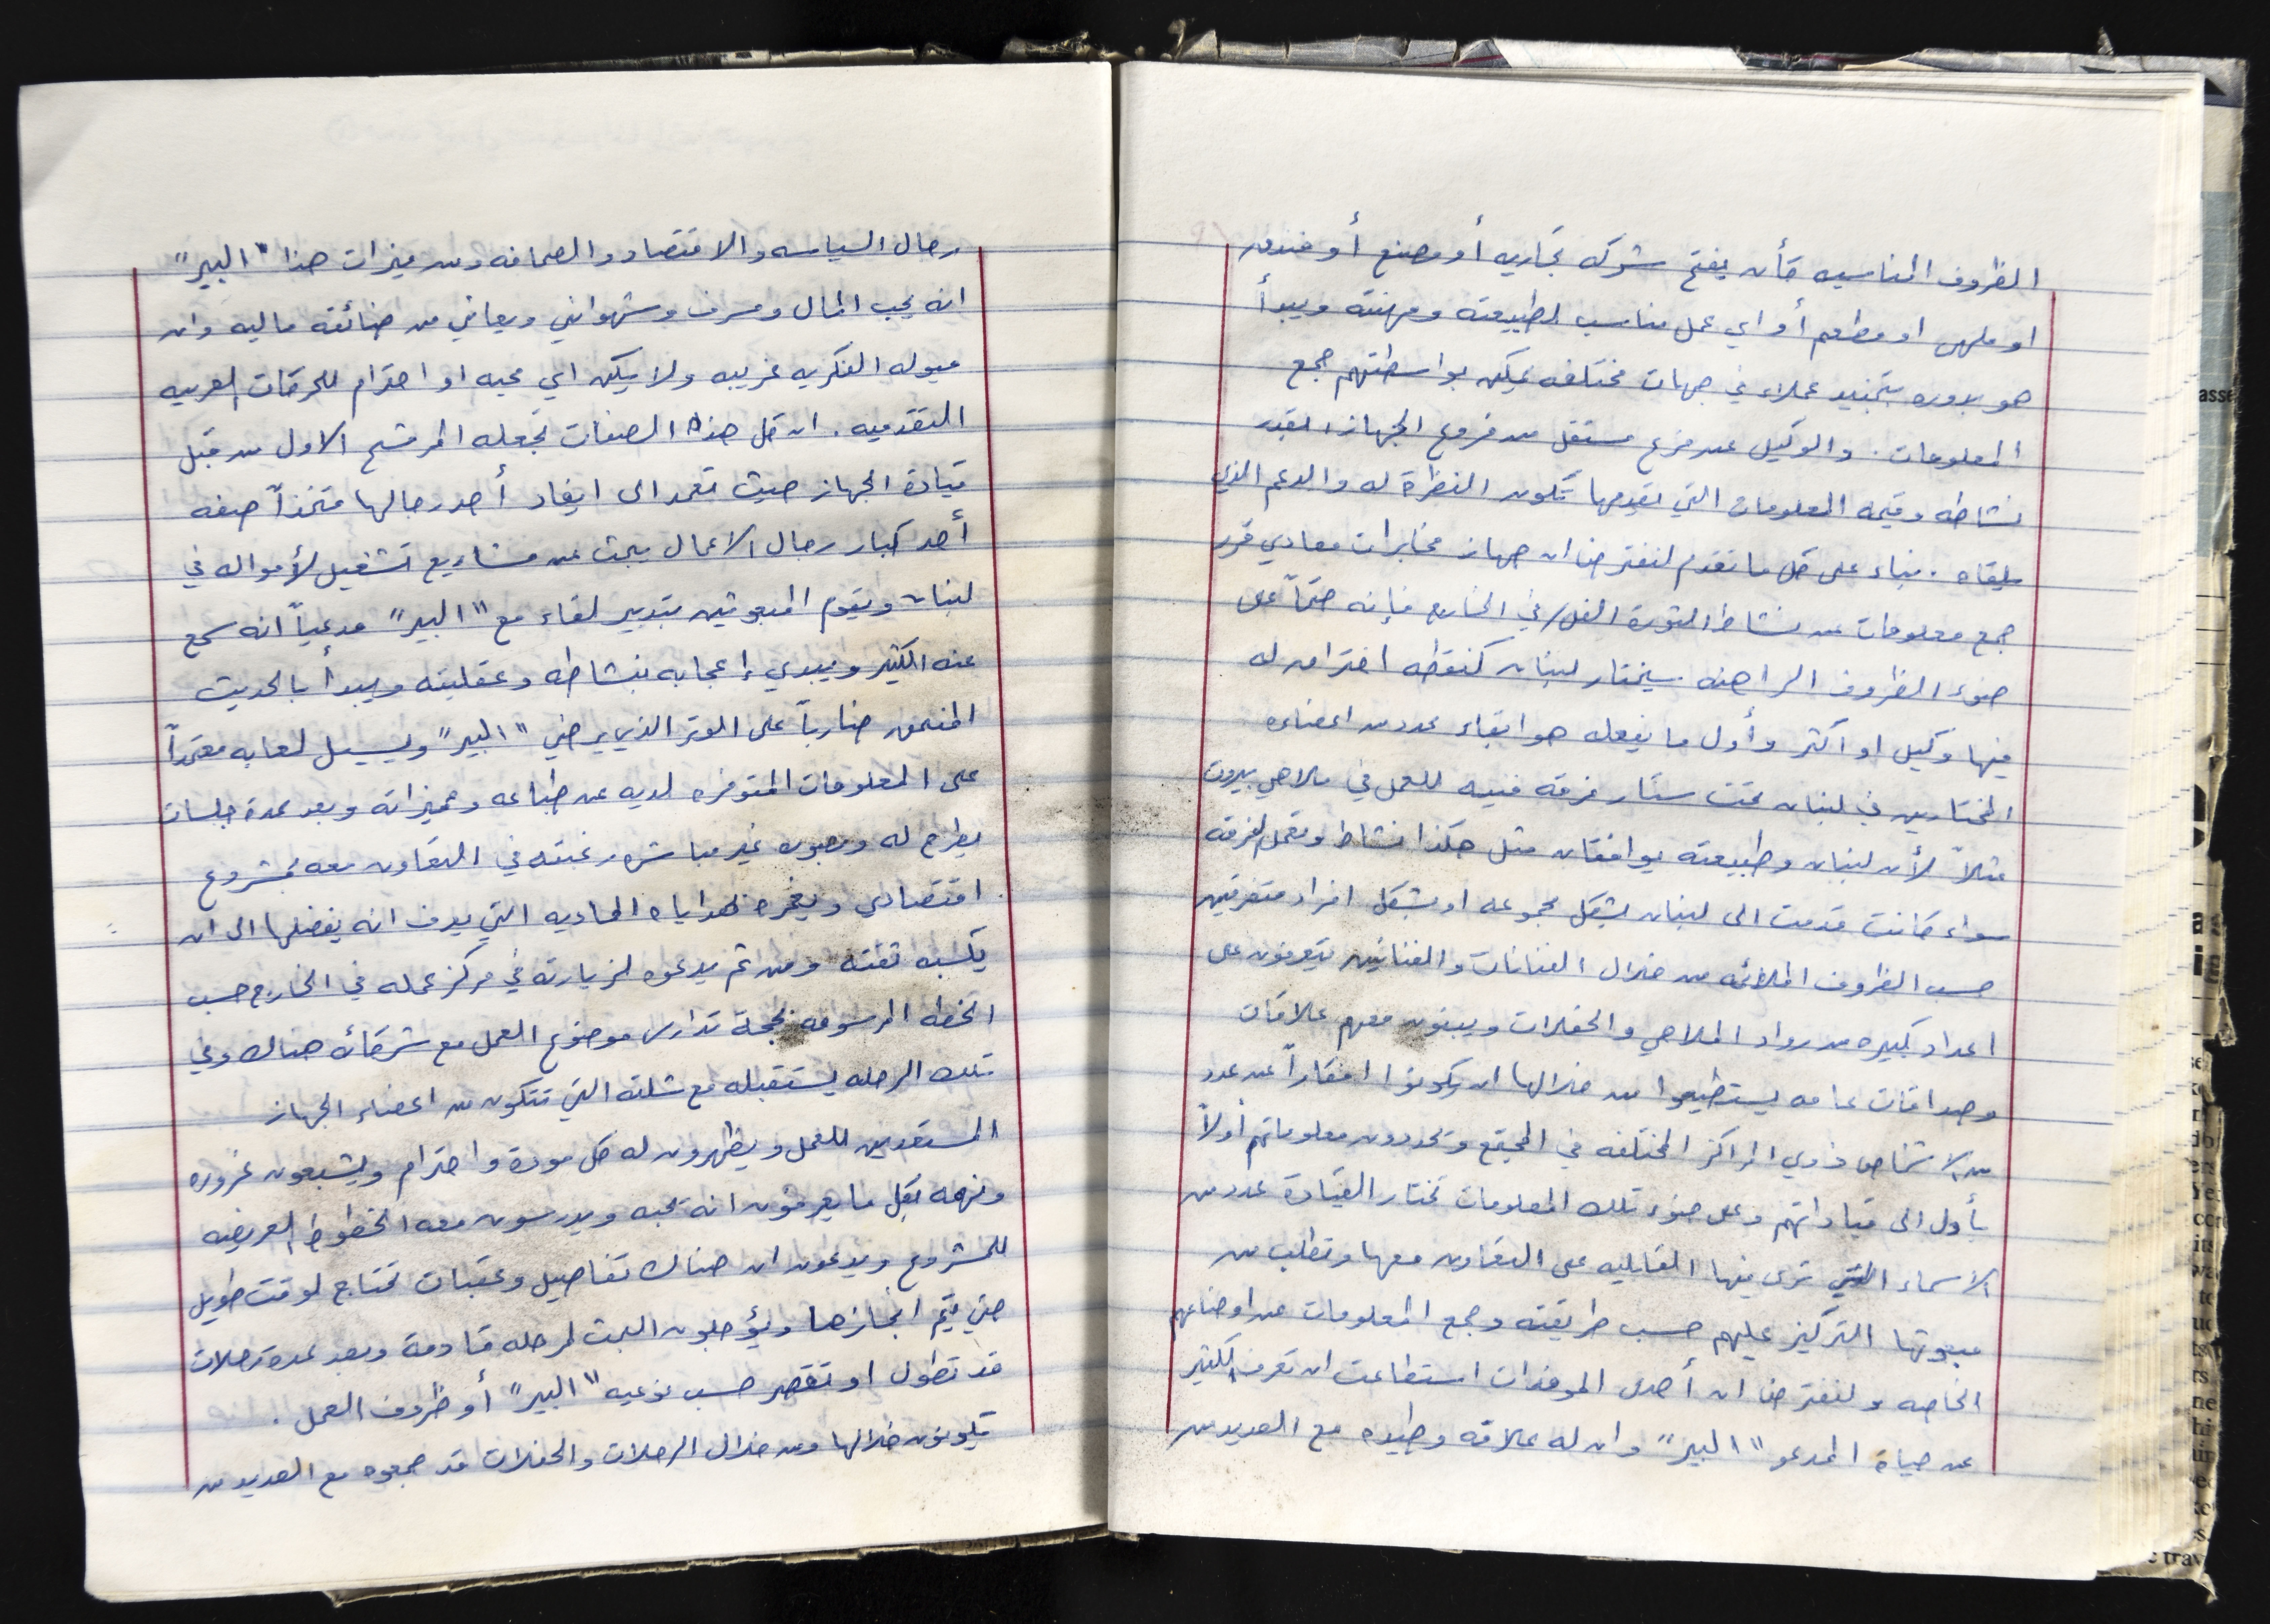 الظروف المناسبه كأن يفتح شركه تجاريه أو مصنع أو فندق
او ملهى او مطعم أو اي عمل مناسب لطبيعته ومهنته ويبدأ
هو بدوره بتجنيد عملاء في جهات مختلفه يمكن بواسطتهم جمع
المعلومات. والوكيل عن فرع مستقل من فروع الجهاز، بقدر
نشاطه وقيمه المعلومات التي يقدمها تكون النظرة له والدعم الذي
يلقاه. بناء على كل ما تقدم لنفترض ان جهاز مخابرات معادي قرر
جمع معلومات عن نشاط الثورة الفل/ في الخارج فإنه حتماً على
ضوء الظروف الراهنه سيختار لبنان كنقطه اختراق له
فيها وكيل او اكثر وأول ما يفعله هو ابقاء عدد من اعضاءه
المختارين في لبنان تحت ستار فرقه فنيه للعمل في ملاهي بيروت
مثلاً لأن لبنان وطبيعته يوافقان مثل هكذا نشاط وتعمل الفرقه
سواء كانت قدمت الى لبنان بشكل مجموعه او بشكل افراد متفرقين
حسب الظروف الملائمه من خلال الفنانات والفنانين يتعرفون على
اعداد كبيره من رواد الملاهي والحفلات ويبنون معهم علاقات
وصداقات عامه يستطيعوا من خلالها ان يكونوا افكاراً عن عدد
من الاشخاص ذوي المراكز المختلفه في المجتمع ويحددون معلوماتهم أولاً
بأول الى قياداتهم وعلى ضوء تلك المعلومات تختار القيادة عدد من
الاسماء التي ترى فيها القابليه على التعاون معها وتطلب من
مبعوثها التركيز عليهم حسب طريقته وجمع المعلومات عن اوضاعهم
الخاصه ولنفترض ان أحدى الموفدات استطاعت ان تعرف الكثير
عن حياة المدعو "البير" وان له علاقه وطيده مع العديد من
رجال السياسه والاقتصاد والصحافه ومن ميزات هذا "البير"
انه يحب المال ومسرف وشهواني ويعاني من ضائقه ماليه وان
ميوله الفكريه غريبه ولا يكن اي محبه او احترام للحركات العربيه
التقدميه. ان كل هذه الصفات تجعله المرشح الاول من قبل
قيادة الجهاز حيث تعمد الى ايفاد أحد رجالها متخذاً صفه
أحد كبار رجال الاعمال يبحث عن مشاريع تشغيل لأمواله في
لبنان ويقوم المبعوثين بتدبير لقاء مع "البير" مدعياً انه سمع
عنه الكثير ويبدي إعجابه بنشاطه وعقليته ويبدأ بالحديث
المنمق ضارباً على الوتر الذي يرضي "البير" ويسيل لعابه معتمداً
على المعلومات المتوفره لديه عن طباعه ومميزاته وبعد عدة جلسات
يطرح له وبصوره غير مباشره رغبته في التعاون معه بمشروع
اقتصادي ويغمره بهداياه الماديه التي يعرف انه يفضلها الى ان
يكسبه ثقته ومن ثم يدعوه لزيارته في مركز عمله في الخارج حسب
الخطه المرسومه بحجة تدارس موضوع العمل مع شركائه هناك وفي
تلك الرحله يستقبله مع شلته التي تتكون من اعضاء الجهاز
المستعدين للعمل ويظهرون له كل مودة واحترام ويشبعون غروره
ونهمه بكل ما يعرفون انه يحبه ويدرسون معه الخطوط العريضه
للمشروع ويدعون ان هناك تفاصيل وعقبات تحتاج لوقت طويل
حتى يتم انجازها ويؤجلون البحث لمرحله قادمة وبعد عدة رحلات
قد تطول او تقصر حسب نوعيه "البير" أو ظروف العمل.
يكونون خلالها ومن خلال الرحلات والحفلات قد جمعوه مع العديد من